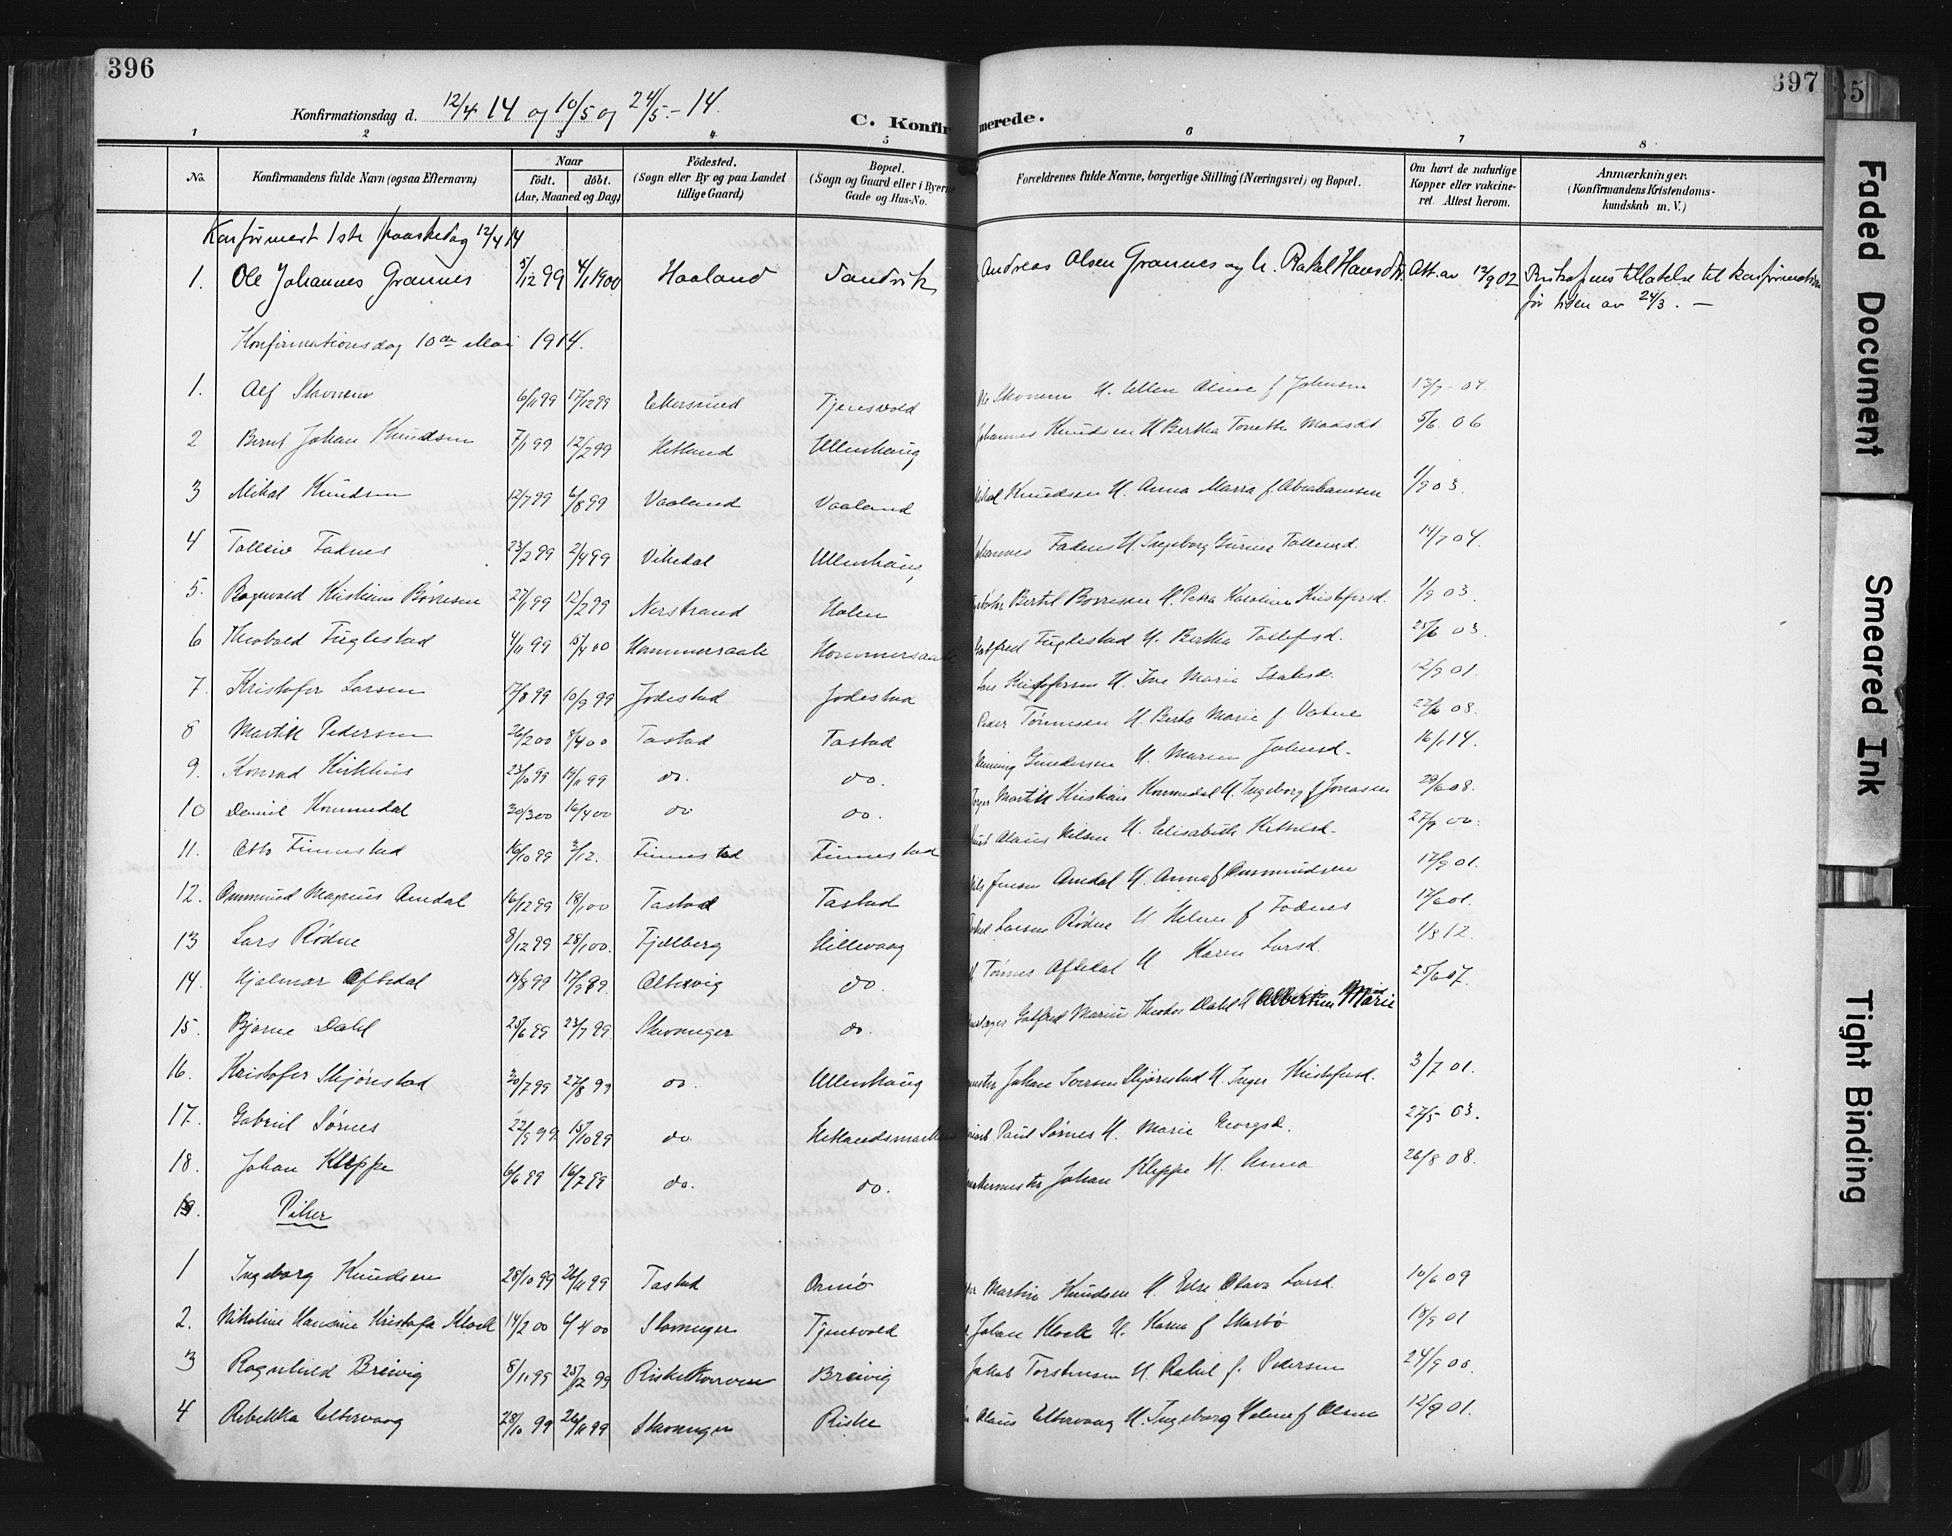 396
397
Konfirmationsdag d. 12/4 14 og 10/5 og 24/5.-14.
C. Konfirmerede.
1 2 3 4 5 6 7 8
No. Konfirmandens fulde Navn (ogsaa Efternavn) Naar födt. döbt. (Aar, Maaned og Dag) Födested. (Sogn eller By og paa Landet tillige Gaard) Bopæl. (Sogn og Gaard eller i Byerne Gade og Hus-No. Forældrenes fulde Navne, borgerlige Stilling (Næringsvei) og Bopæl. Om havt de naturlige Kopper eller vakcineret. Attest herom. Anmærkninger. (Konfirmandens Kristendomskundskab m. V.)
Konfirmert 1ste paaskedag 12/4 14
1. Ole Johannes Grannes 5/12 99 4/1 1900 Haaland Sandvik Andreas Olsen Grannes og h. Rakel Hansdtr. Att. av 12/9 02 Biskopens tillatelse til konfirmation
før tiden av 24/3. —
Konfirmationsdag 10de Mai 1914.
1. Alf Skonem 6/11 99 17/12 99 Ekersund Tjensvold Ole Skonem H. Ellen Oline f Johnsen 13/7-04.
2 Bernt Johan Knudsen 7/1 99 12/2 99 Hetland Ullenhaug Johannes Knudsen H Bertha Tonette Maasdt 5/6. 06
3 Mikal Knudsen 12/7 99 6/8 99 Vaaland Vaaland Knudsen H. Anna Maria f Abrahamsen 1/9 03.
4 Tolleiv Fadnes 23/2 99 2/4 99 Vikedal Ullenhaug Johannes Fadnes H. Ingeborg Gurine Tolleivsd. 14/7 04.
5. Ragnvald Kristians Børresen 27/1 99 12/2 99 Nerstrand Holen Bertil Børresen H. Petra Karoline Kristofersd. 1/9 03.
6 Theobald Fuglestad 4/11 99 15/4 00 Hommersaak Hommersaak Gotfred Fuglestad H. Bertha Tollefsd. 25/6 03.
7. Kristofer Larsen 17/8 99 10/9 99 Jodestad Jodestad Lars Kristofersen H. Ine Maria Isaksd. 12/9 01.
8 Martin Pedersen 26/2 00 8/4 00 Tastad Tastad Peder Tønnesen H Berta Marie f Vatne 22/6 08.
9. Konrad Kirkhus 23/10 99 19/11 99 do. do. Henning Gundersen H. Maren Johnsd. 16/1 14.
10 Daniel Hommedal 30/3 00 16/4 00 do do. Martin Kristian Hommedal H. Ingeborg f Jonasen 29/6 08.
11. Otto Finnestad 16/10 99 3/12. Finnestad Finnestad Olaus Nilsen H. Elisabeth Kettelsd. 27/9 00.
12. Ommund Magnus Arndal 16/12 99 18/1 00 Tastad Tastad Nils Jensen Arndal H. Anna f Ommundsen 12/9 01.
13 Lars Rødne 8/12 99 28/1 00. Fjelberg Hillevaag Larsen Rødne H Helene f Fodnes 17/6 01.
14. Hjalmar Oftedal 14/8 99 17/9 99. Oltesvig do. Tønnes Oftedal H Karen Larsd. 1/8 12.
15. Bjarne Dahl 25/6 99 23/7 99 Stavanger do. Gotfred Marius Theodor Dahl H Albertine Marie 25/6 07.
16. Kristofer Skjørestad 30/7 99 27/8 99 do. Ullenhaug Johan Iversen Skjørestad H. Inger Kristofersd. 3/7 01.
17. Gabriel Sørnes 22/9 99. 15/10 99 do. Hetlandsmarken Paul Sørnes H. Marie Georgsd. 27/5 03.
18. Johan Kleppe 6/6 99 16/7 99 do. do. Johan Kleppe H. Anna 26/8 08.
19. Piker
1 Ingeborg Knudsen 28/10 99 26/11 99 Tastad Omø Martin Knudsen H. Else Olava Larsd 10/6 09
2. Nikoline Hansine Kristofa Klock 14/2 00 6/4 00 Stavanger Tjensvold Johan Klock H. Karen f Skarbø 18/9 01
3 Ragnhild Breivig 8/11 99 25/12 99 Riskekverven Breivig Jakob Torstensen H Rakel f. Pedersen 24/9 00.
4 Rebekka Eltervaag 28/10 99 26/11 99 Stavanger Riske Olaus Eltervaag H. Ingeborg Helene f Olsen 12/9 01.
Faded Document
Smeared Ink
Tight Binding